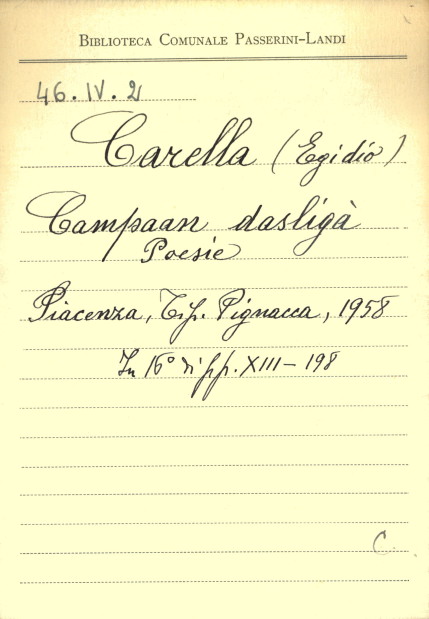 BIBLIOTECA COMUNALE PASSERINI-LANDI
46.IV.2
Carella (Egidio)
Campaan dasligà
Poesie
Piacenza, Tip. Pignacca, 1958
In 16° di pp. XIII - 198
C.